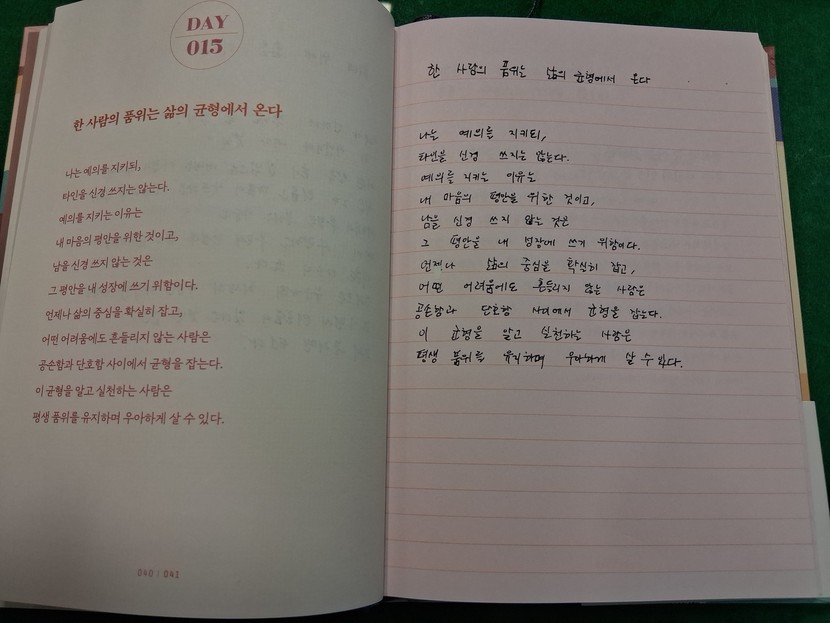 DAY
015
한 사람의 품위는 삶의 균형에서 온다
나는 예의를 지키되,
타인을 신경 쓰지는 않는다.
예의를 지키는 이유는
내 마음의 평안을 위한 것이고,
남을 신경 쓰지 않는 것은
그 평안을 내 성장에 쓰기 위함이다.
언제나 삶의 중심을 확실히 잡고,
어떤 어려움에도 흔들리지 않는 사람은
공손함과 단호함 사이에서 균형을 잡는다.
이 균형을 알고 실천하는 사람은
평생 품위를 유지하며 우아하게 살 수 있다.
040 / 041
한 사람의 품위는 삶의 균형에서 온다
나는 예의를 지키되,
타인을 신경 쓰지는 않는다.
예의를 지키는 이유는
내 마음의 평안을 위한 것이고,
남을 신경 쓰지 않는 것은
그 평안을 내 성장에 쓰기 위함이다.
언제나 삶의 중심을 확실히 잡고,
어떤 어려움에도 흔들리지 않는 사람은
공손함과 단호함 사이에서 균형을 잡는다.
이 균형을 알고 실천하는 사람은
평생 품위를 유지하며 우아하게 살 수 있다.